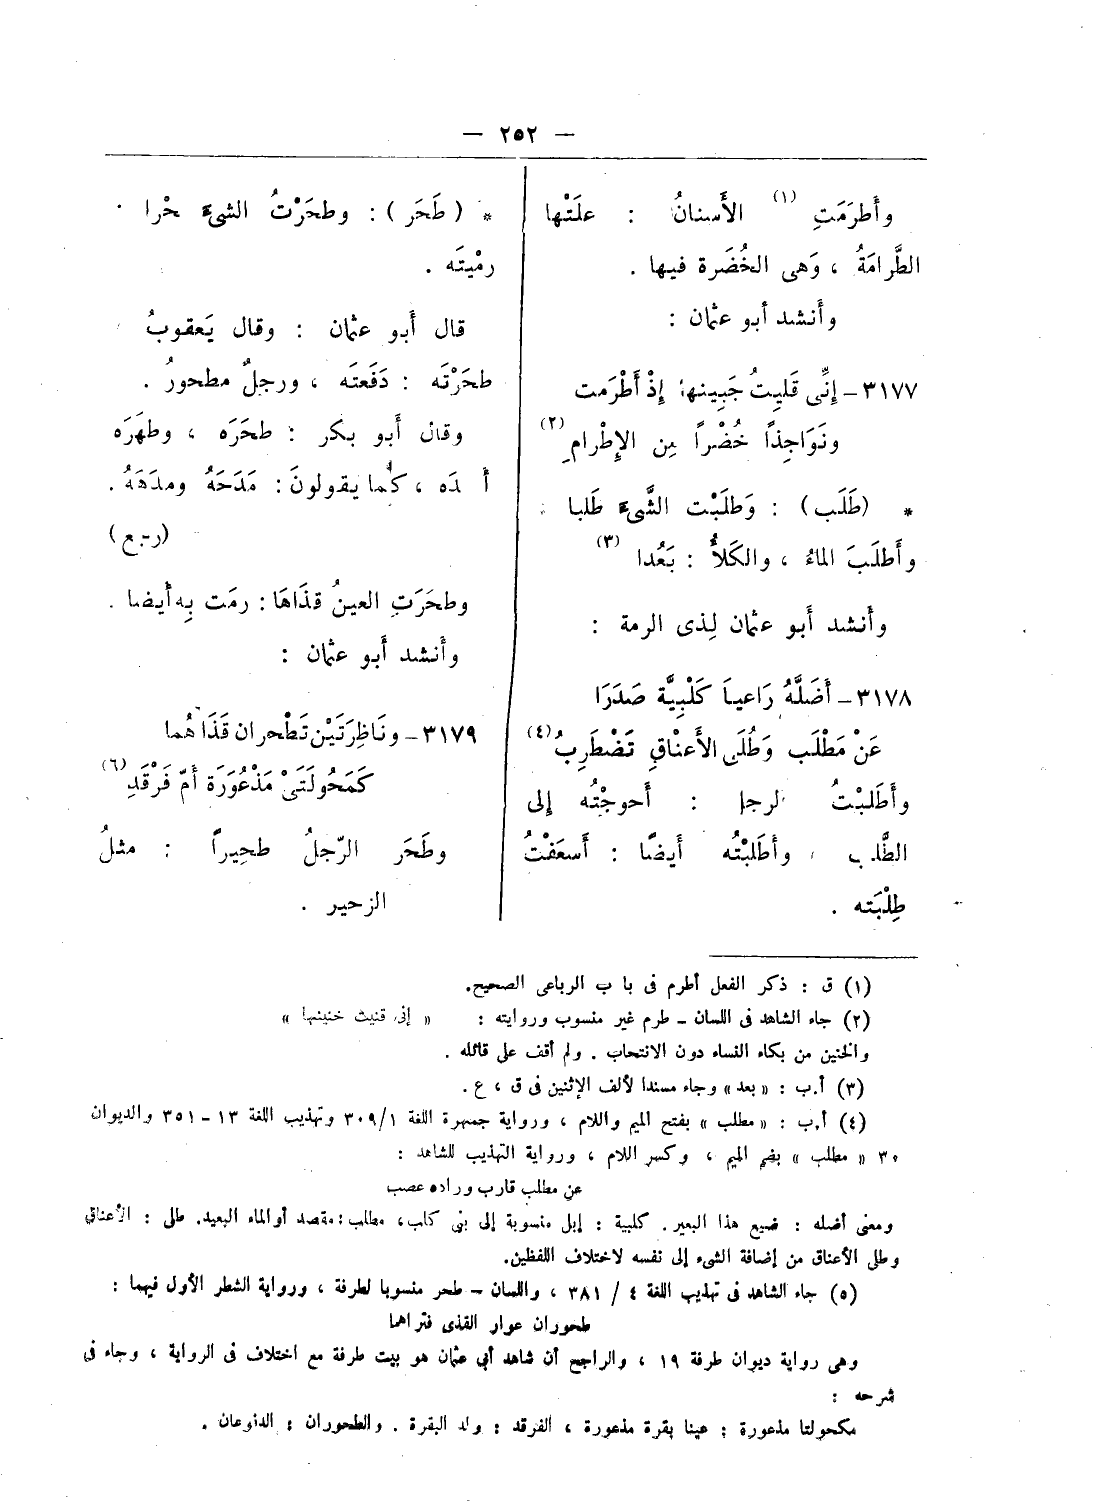 — ٢٥٢ —
وأطرَمَتِ (١) الأَسنانُ : علَتْها
الطَّرامَةُ ، وَهى الخُضَرة فيها .
وأَنشد أبو عثمان :
٣١٧٧ – إنِّى قَلِيتُ جَبِينها إذْ أَطْرَمت
ونَوَاجِذاً خُضْراً مِن الإِطْرامِ (٢)
* (طَلَب) : وَطلَبْت الشَّىءَ طَلبا
وأَطلَبَ الماءُ ، والكَلأُ : بَعُدا (٣)
وأَنشد أَبو عثمان لِذى الرمة :
٣١٧٨ – أَضَلَّهُ رَاعياَ كَلْبِيَّة صَدَرَا
عَنْ مَطْلَب وَطُلَى الأَعناقِ تَضْطَرِبُ (٤)
وأَطَلبْتُ الرجل : أَحوجْتُه إلى
الطَّلب ، وأَطلَبْتُه أَيضًا : أَسعَفْتُ
طِلْبَته .
* ( طَحَر ) : وطحَرْتُ الشىءَ حْرا
رمْيتَه .
قال أَبو عثمان : وقال يَعقوبُ
طحَرْتَه : دَفَعتَه ، ورجلٌ مطحورُ .
وقال أَبو بكر : طحَرَه ، وطهَرَه
أ لدَه ، كُما يقولونَ : مَدَحَهُ ومدَهَهُ .
(رجع)
وطحَرَتِ العينُ قذَاهَا : رمَت بِه أَيضا .
وأَنشد أَبو عثمان :
٣١٧٩ – ونَاظِرَتَيْن تَطْحران قَذَاهُما
كَمَحُولَتَىْ مَذْعُورَة أُمّ فَرْقَدِ (٦)
وطَحَر الرّجلُ طحِيراً : مثلُ
الزحير .
(١) ق : ذكر الفعل أطرم فى با ب الرباعى الصحيح.
(٢) جاء الشاهد فى اللسان – طرم غير منسوب وروايته : « إنى قنيت خنينها »
والخنين من بكاء النساء دون الانتحاب . ولم أقف على قائله .
(٣) أ.ب : « بعد » وجاء مسندا لألف الإثنين فى ق ، ع .
(٤) أ.ب : « مطلب » بفتح الميم واللام ، ورواية جمهرة اللغة ٣٠٩/١ وتهذيب اللغة ١٣ – ٣٥١ والديوان
٣٠ « مطلب » بضم الميم ، وكسر اللام ، ورواية التهذيب للشاهد :
عن مطلب قارب وراده عصب
ومعنى أضله : ضيع هذا البعير. كلبية : إبل منسوبة إلى بنى كلب، مطلب : مقصد أو الماء البعيد. طلى : الأعناق
وطلى الأعناق من إضافة الشىء إلى نفسه لاختلاف اللفظين.
(٥) جاء الشاهد فى تهذيب اللغة ٤ / ٣٨١ ، واللسان – طحر منسوبا لطرفة ، ورواية الشطر الأول فيهما :
طحوران عوار القذى فتراهما
وهى رواية ديوان طرفة ١٩ ، والراجح أن شاهد أبى عثمان هو بيت طرفة مع اختلاف فى الرواية ، وجاء فى
شرحه :
مكحولتا مذعورة : عينا بقرة مذعورة ، الفرقد : ولد البقرة . والطحوران : الدفوعان .